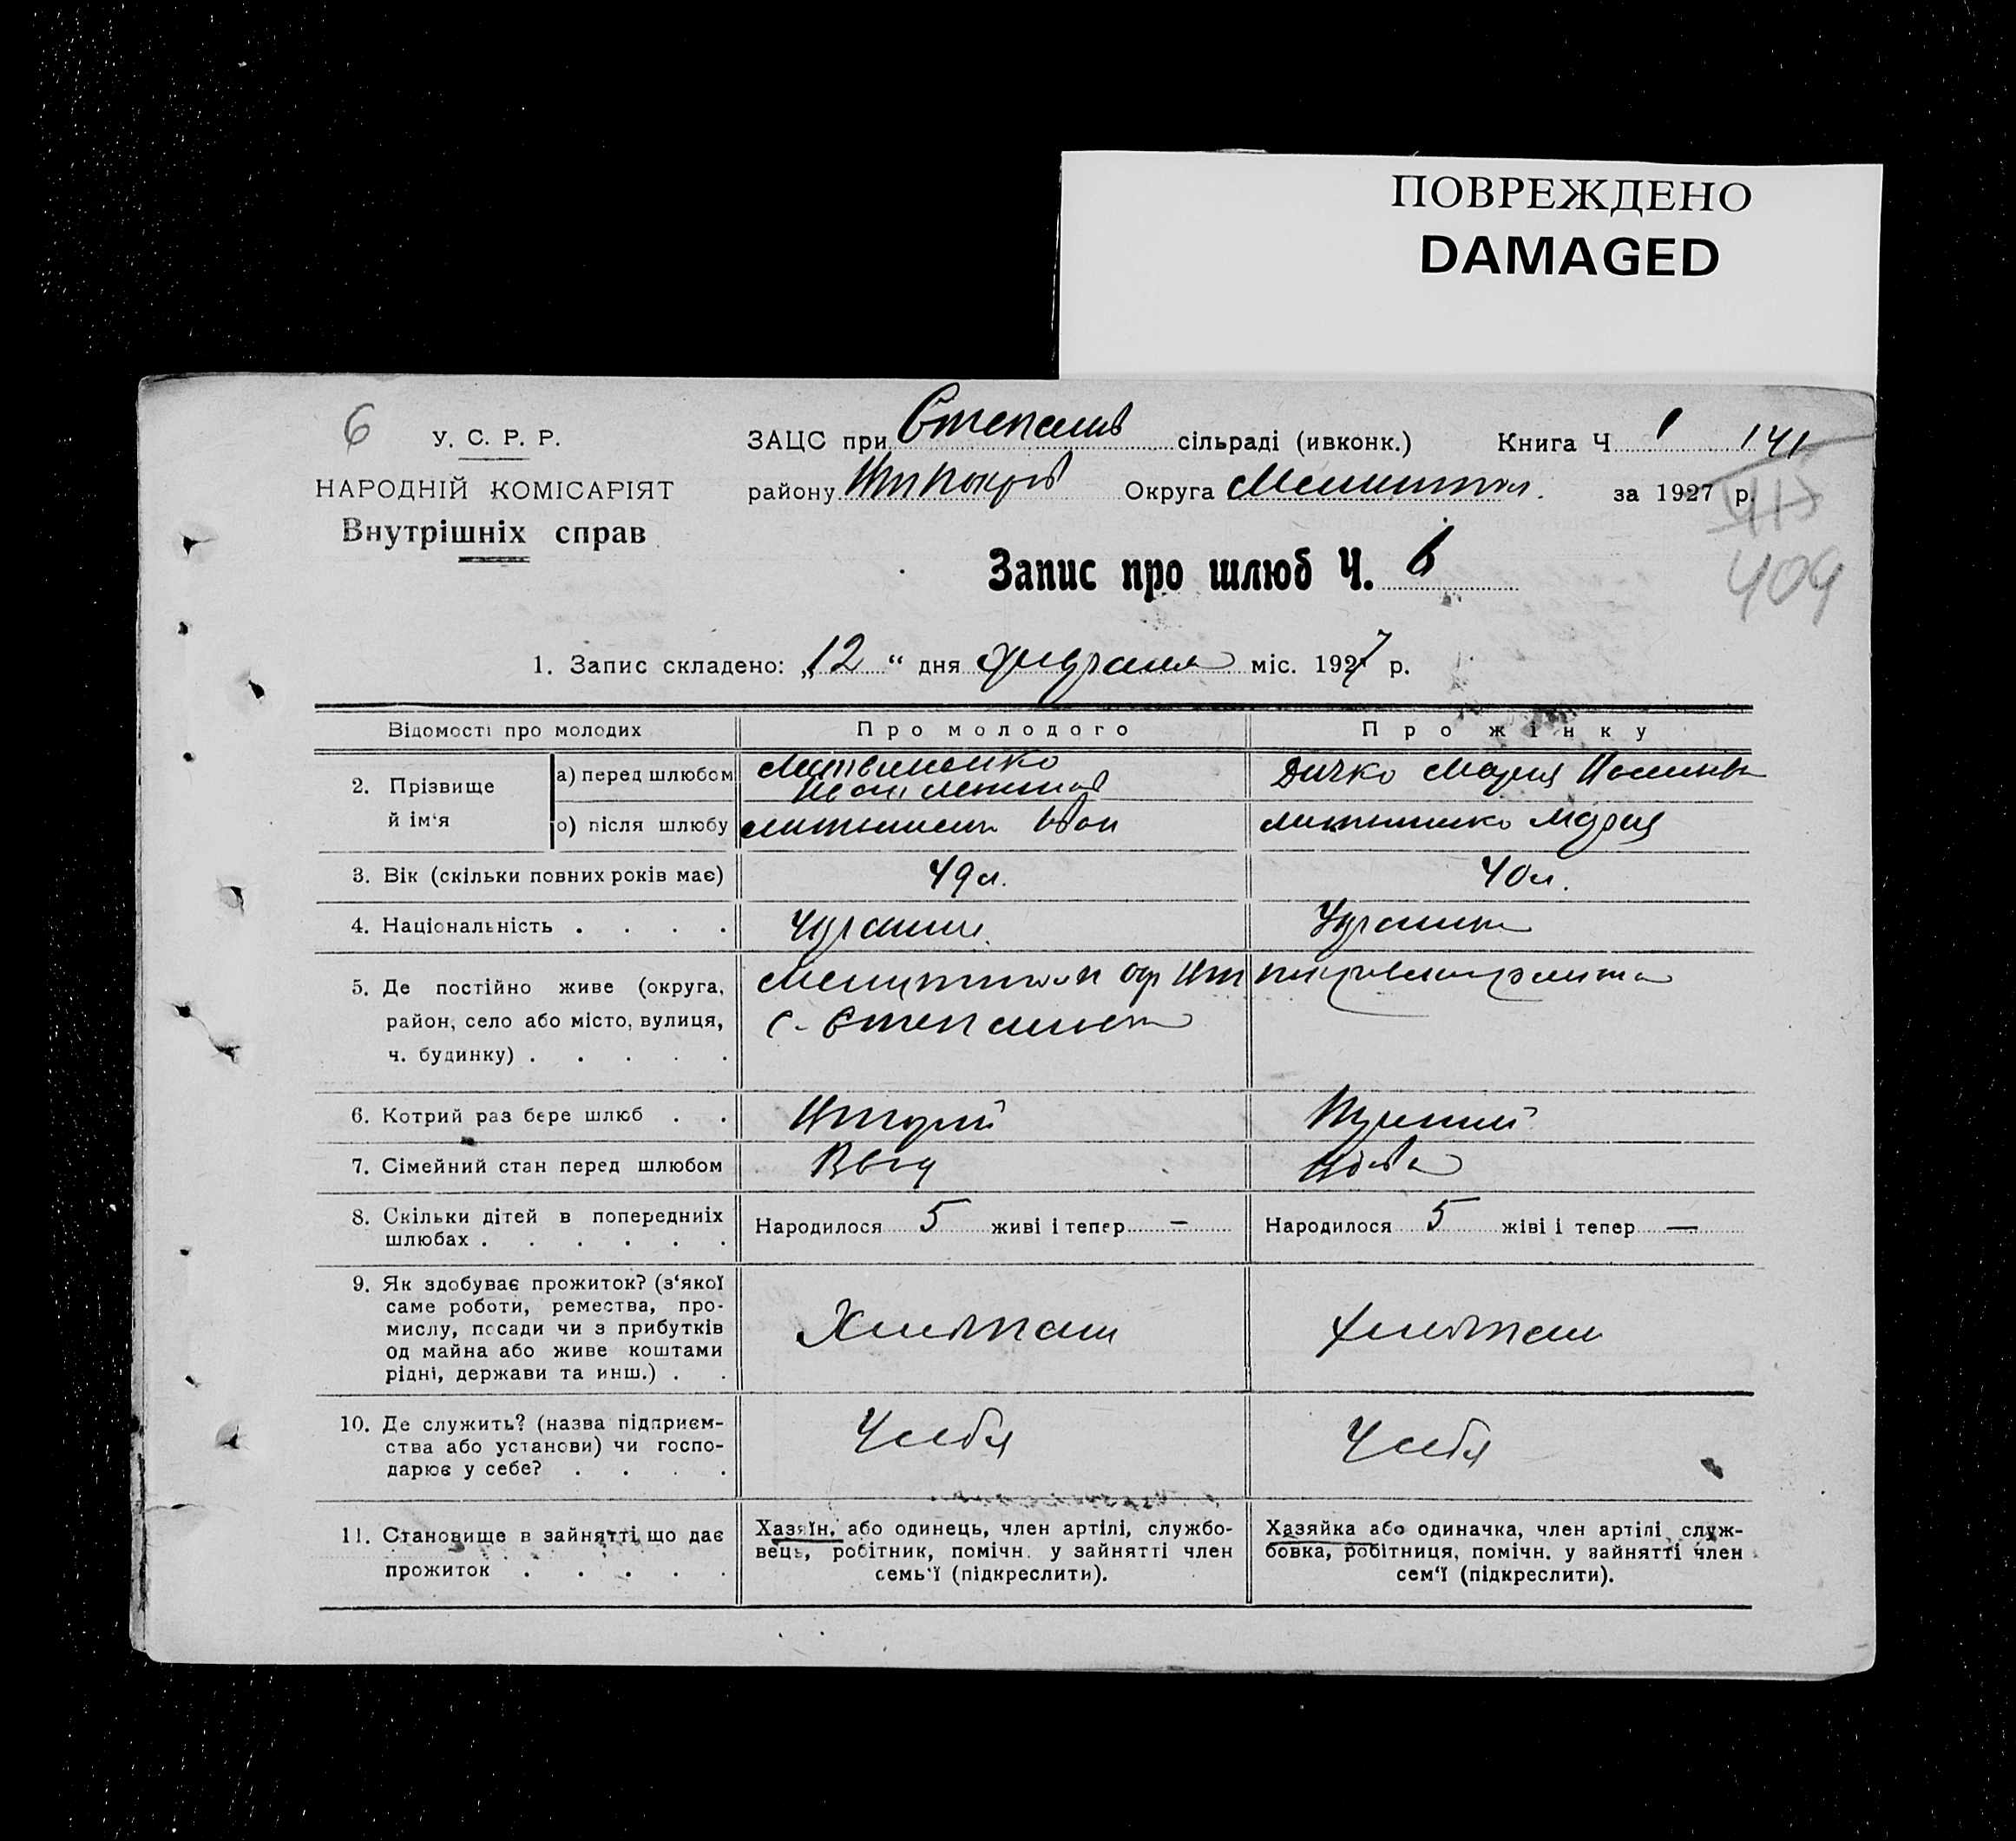 ПОВРЕЖДЕНО
DAMAGED
6
У. С. Р. Р.
НАРОДНІЙ КОМІСАРІЯТ
Внутрішніх справ
ЗАЦС при Степанів сільраді (ивконк.) Книга Ч 1 141
району Округа Мелитопол. за 1927 р.
409
Запис про шлюб Ч. 6
1. Запис складено: „12“ дня февраля міс. 1927 р.
Відомості про молодих Про молодого Про жінку
2. Прізвище й ім'я
а) перед шлюбом Литвиненко Дичко Мария
о) після шлюбу Литвиненко Иван Литвиненко Мария
3. Вік (скільки повних років має) 49 л. 40 л.
4. Національність . . . . Украин. Украинка
5. Де постійно живе (округа, Мелитопол
район, село або місто, вулиця, с. Степановка
ч. будинку) . . . . .
6. Котрий раз бере шлюб . . Второй
7. Сімейний стан перед шлюбом Вдов Вдова
8. Скільки дітей в попередниіх Народилося 5 живі і тепер — Народилося 5 жіві і тепер —
шлюбах . . . . . .
9. Як здобуває прожиток? (з‘якої
саме роботи, ремества, про-
мислу, посади чи з прибутків Хлебопаш Хлебопаш
од майна або живе коштами
рідні, держави та инш.) . .
10. Де служить? (назва підприєм-
ства або установи) чи госпо- У себя У себя
дарює у себе? . . . .
11. Становище в зайнятті, що дає
прожиток . . . . .
Хазяїн, або одинець, член артілі, службо-
вець, робітник, помічн. у зайнятті член
семь‘ї (підкреслити).
Хазяйка або одиначка, член артілі служ-
бовка, робітниця, помічн. у зайнятті член
сем‘ї (підкреслити).